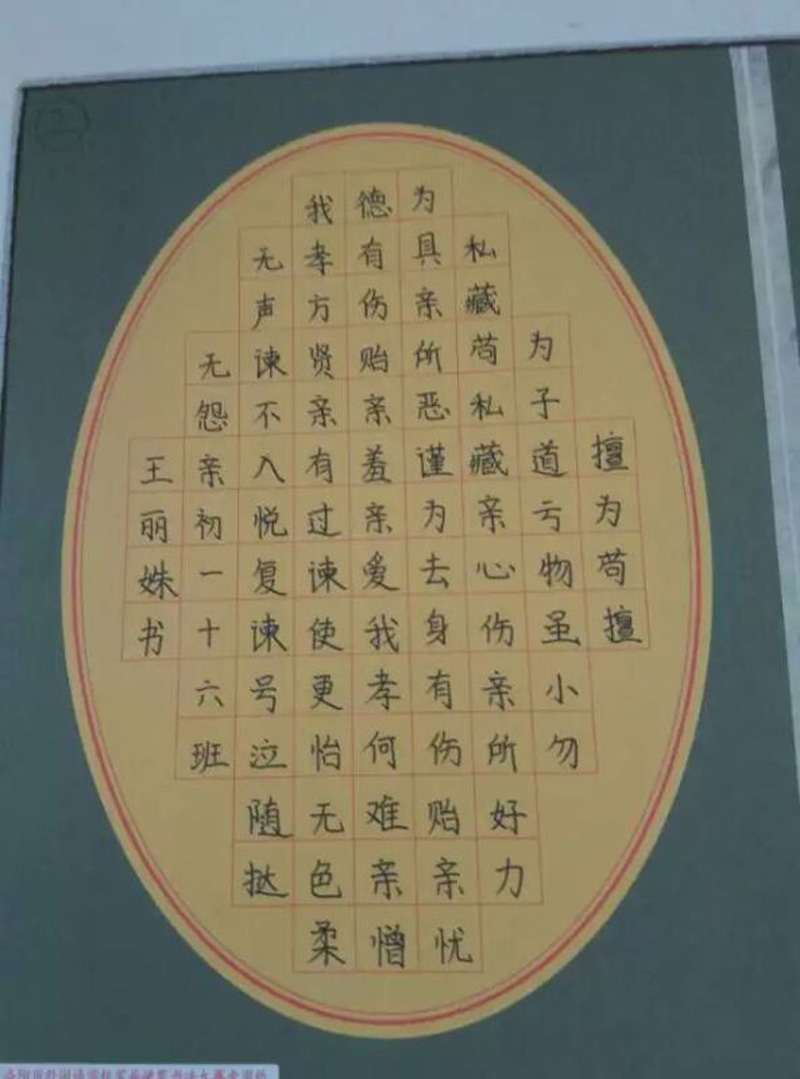 擅为苟擅
为子道亏物虽小勿
私藏苟私藏亲心伤亲所好力
为具亲所恶谨为去身有伤贻亲忧
德有伤贻亲羞亲爱我孝何难亲憎
我孝方贤亲有过谏使更怡无色柔
无声谏不入悦复谏号泣随挞
无怨亲初一十六班
王丽姝书